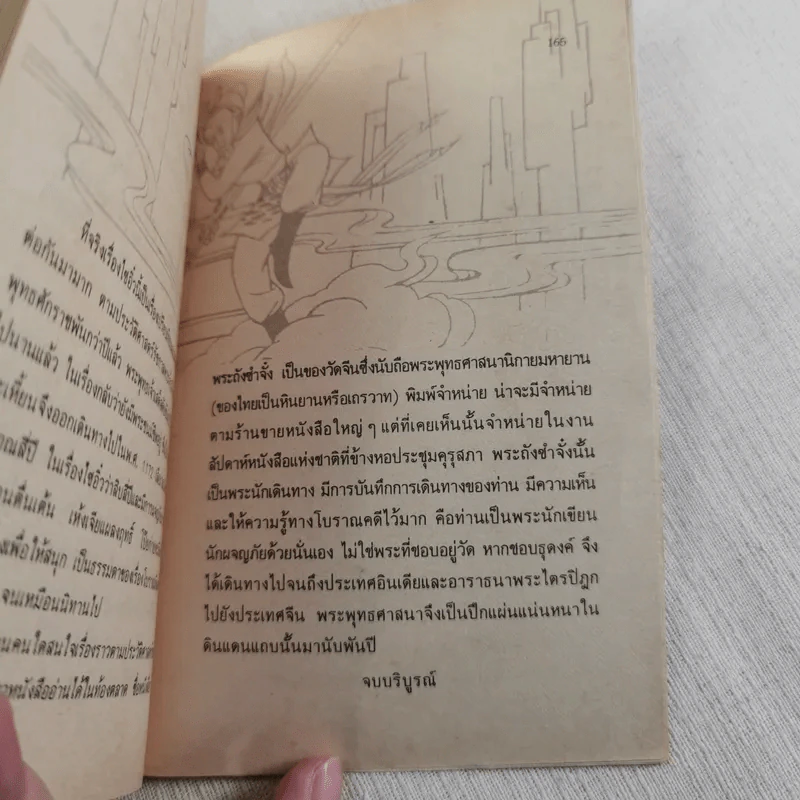 ที่จริงเรื่องไซอิ๋วนี้เป็นเรื่อง
ต่อกันมามาก ตามประวัติศาสตร์
พุทธศักราชพันกว่าปีแล้ว
ไปนานแล้ว ในเรื่องกลับว่ายังมีพระชนม์
จึงออกเดินทางไปในพ.ศ.
ในเรื่องไซอิ๋วว่าสิบสี่ปี
ตื่นเต้น เห้งเจียแผลงฤทธิ์
เพื่อให้สนุก เป็นธรรมดาของเรื่อง
จนเหมือนนิทานไป
คนใดสนใจเรื่องราวตามประวัติศาสตร์
หนังสืออ่านได้ในท้องตลาด
166
พระถังซำจั๋ง เป็นของวัดจีนซึ่งนับถือพระพุทธศาสนานิกายมหายาน
(ของไทยเป็นหินยานหรือเถรวาท) พิมพ์จำหน่าย น่าจะมีจำหน่าย
ตามร้านขายหนังสือใหญ่ ๆ แต่ที่เคยเห็นนั้นจำหน่ายในงาน
สัปดาห์หนังสือแห่งชาติที่ข้างหอประชุมคุรุสภา พระถังซำจั๋งนั้น
เป็นพระนักเดินทาง มีการบันทึกการเดินทางของท่าน มีความเห็น
และให้ความรู้ทางโบราณคดีไว้มาก คือท่านเป็นพระนักเขียน
นักผจญภัยด้วยนั่นเอง ไม่ใช่พระที่ชอบอยู่วัด หากชอบธุดงค์ จึง
ได้เดินทางไปจนถึงประเทศอินเดียและอาราธนาพระไตรปิฎก
ไปยังประเทศจีน พระพุทธศาสนาจึงเป็นปึกแผ่นแน่นหนาใน
ดินแดนแถบนั้นมานับพันปี
จบบริบูรณ์